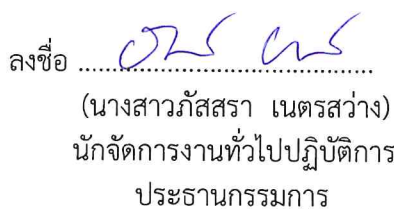 ลงชื่อ ................................................
(นางสาวภัสสรา เนตรสว่าง)
นักจัดการงานทั่วไปปฏิบัติการ
ประธานกรรมการ